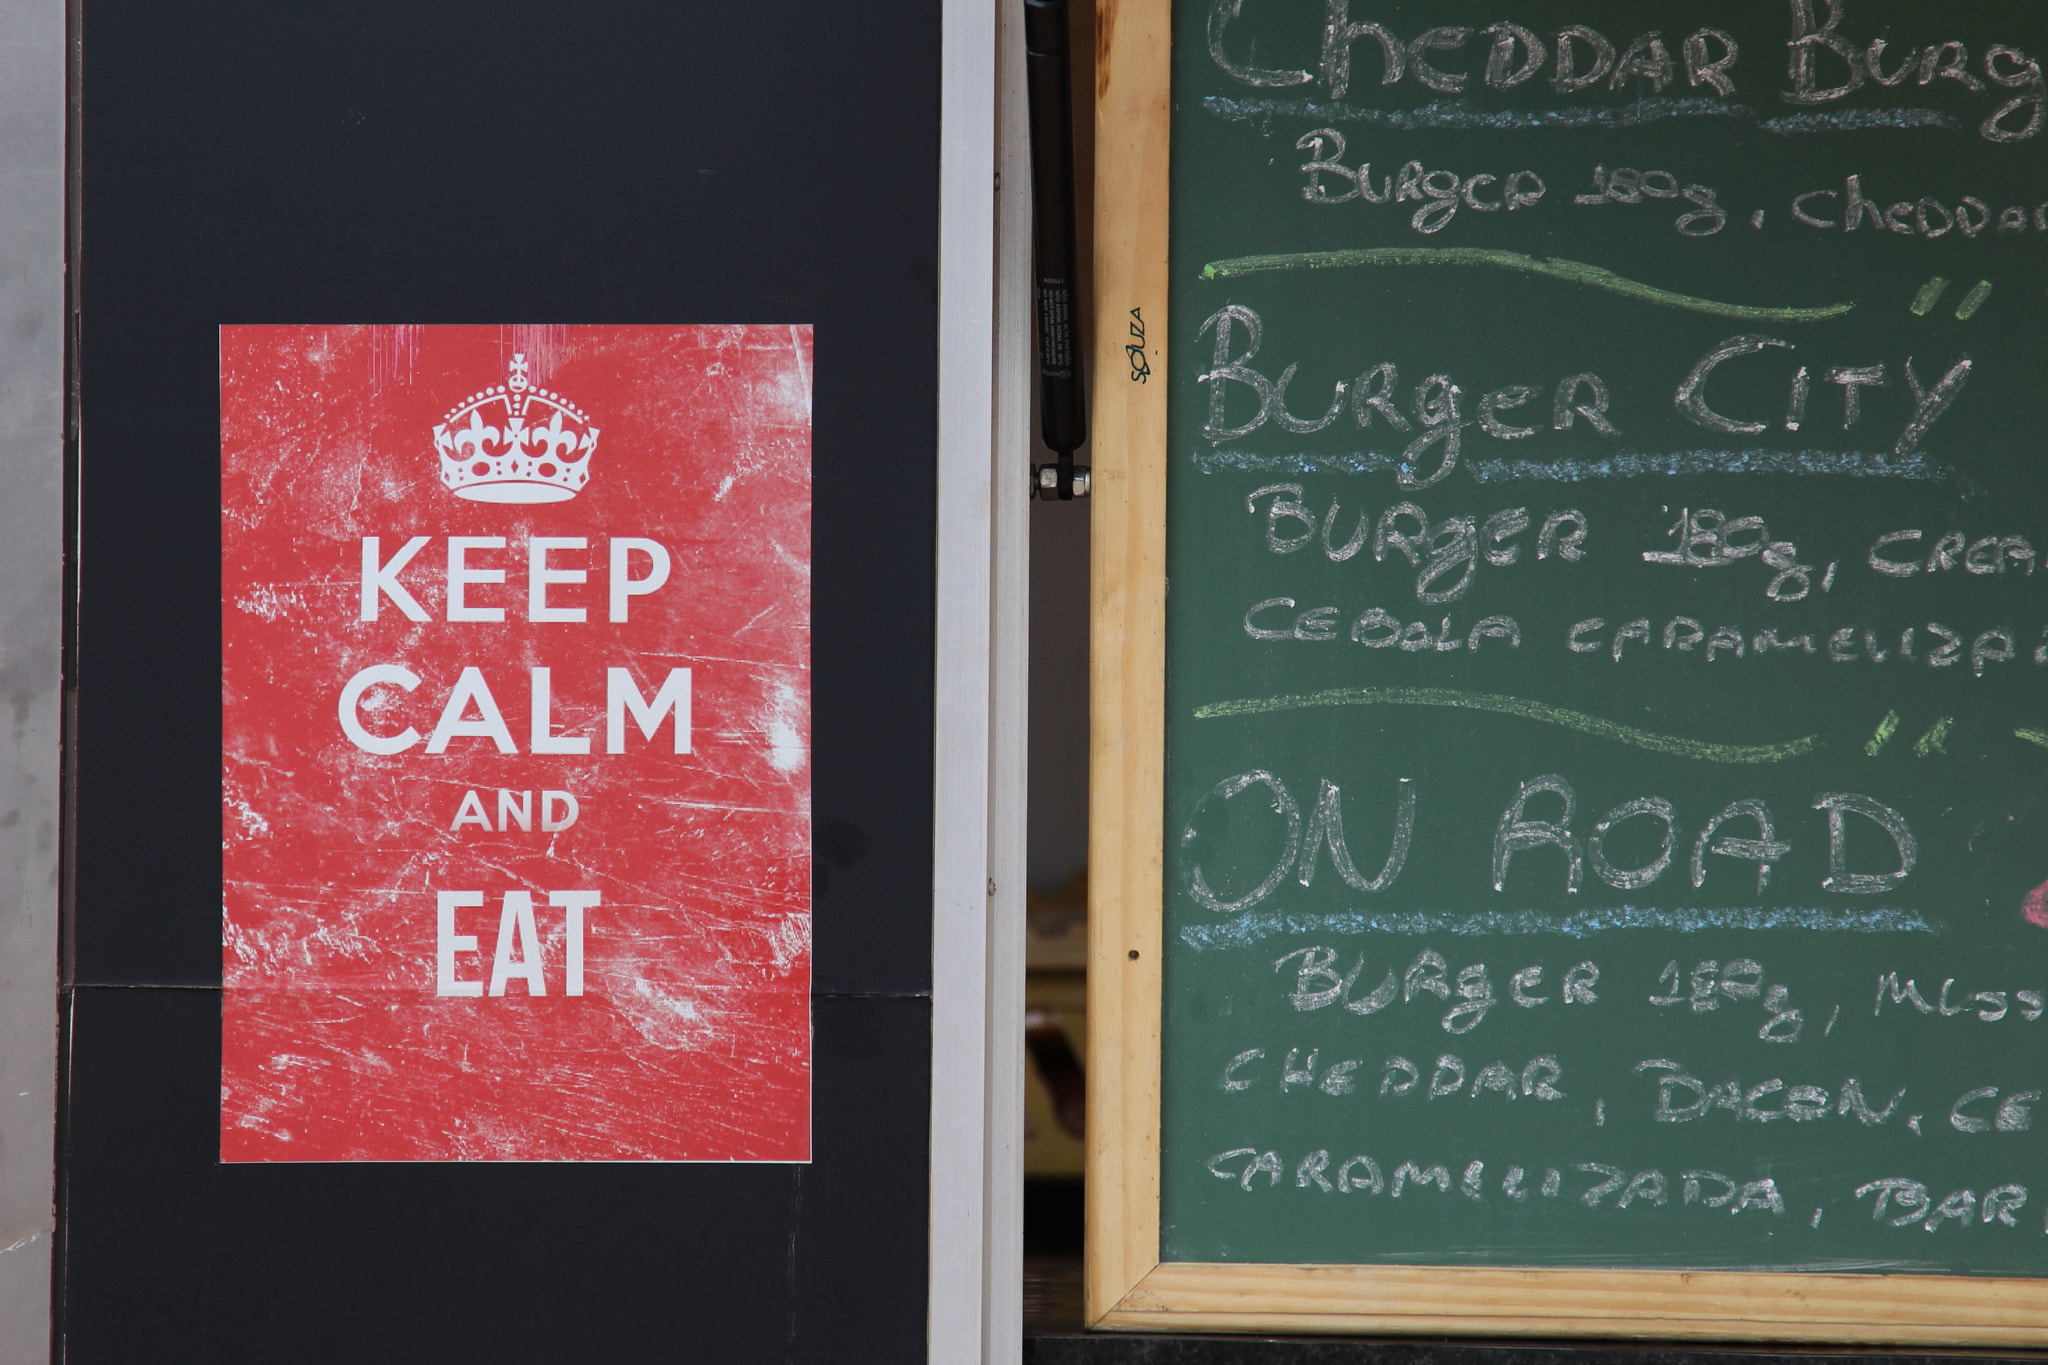 KEEP
CALM
AND
EAT
SOUZA
CHEDDAR BURG
BURGER 180g, CHEDDAR
BURGER CITY
BURGER 180g, CREA
CEBOLA CARAMELIZA
ON ROAD
BURGER 180g, MUSS
CHEDDAR, BACON, CE
CARAMELIZADA, BAR